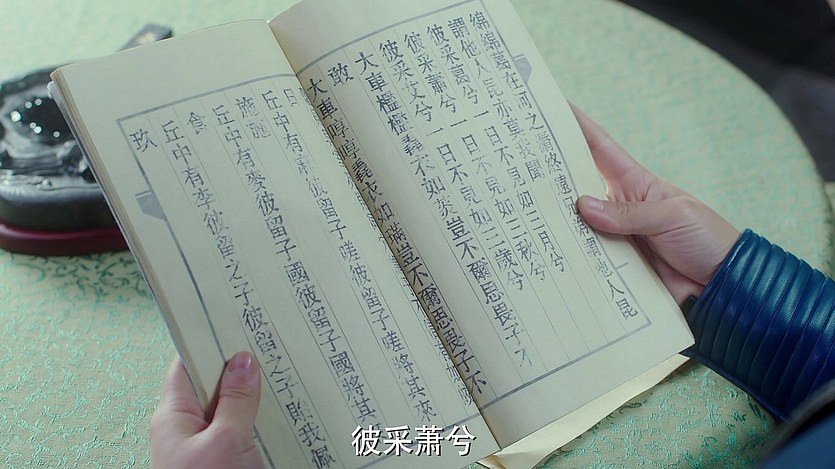 綿綿葛在河之漘終遠兄弟謂他人昆
謂他人昆亦莫我聞
彼采葛兮一日不見如三月兮
彼采蕭兮一日不見如三秋兮
彼采艾兮一日不見如三歲兮
大車檻檻毳衣如菼豈不爾思畏子不
敢
大車啍啍毳衣如璊豈不爾思畏子不
日
丘中有麻彼留子嗟留子嗟將其來
施施
丘中有麥彼留子國彼留子國將其
食
丘中有李彼留之子彼留之子貽我佩
玖
彼采萧兮